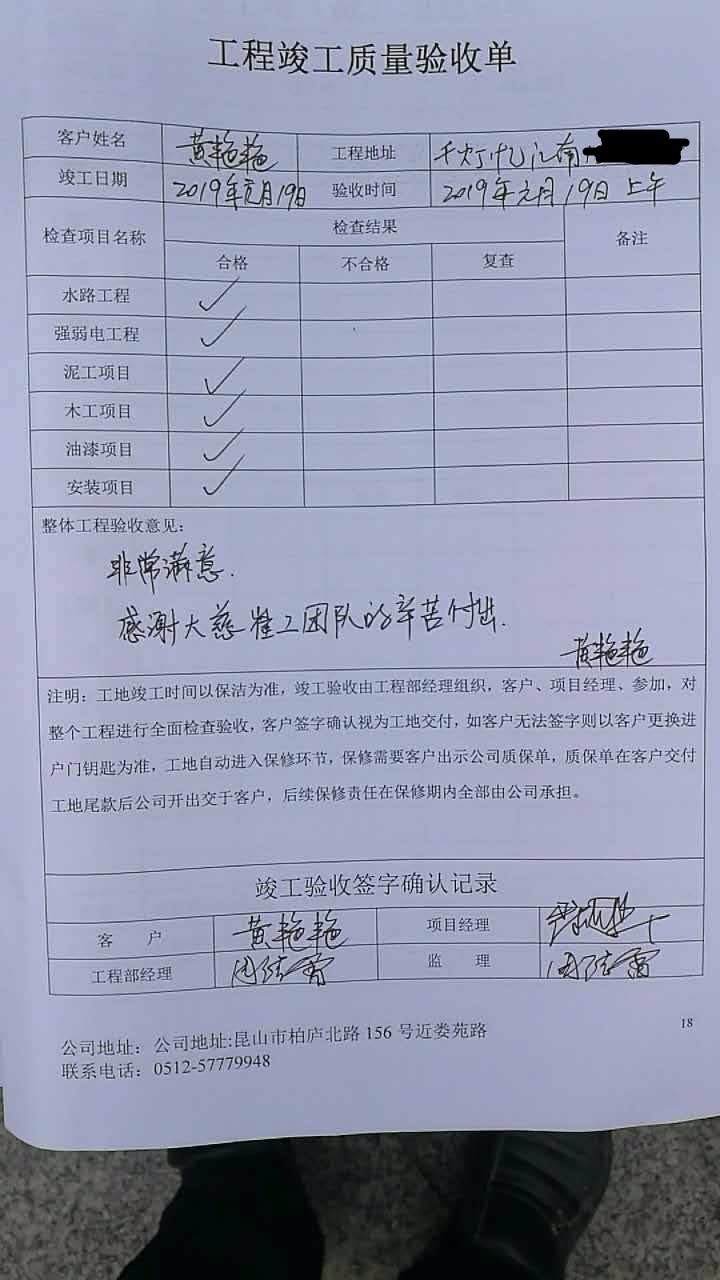 工程竣工质量验收单
客户姓名 黄艳艳 工程地址 千灯忆江南
竣工日期 2019年元月19日 验收时间 2019年元月19日 上午
检查项目名称 检查结果 备注
合格 不合格 复查
水路工程 ✓
强弱电工程 ✓
泥工项目 ✓
木工项目 ✓
油漆项目 ✓
安装项目 ✓
整体工程验收意见:
非常满意.
感谢大慈崔工团队的辛苦付出.
黄艳艳
注明：工地竣工时间以保洁为准，竣工验收由工程部经理组织，客户、项目经理、参加，对
整个工程进行全面检查验收，客户签字确认视为工地交付，如客户无法签字则以客户更换进
户门钥匙为准，工地自动进入保修环节，保修需要客户出示公司质保单，质保单在客户交付
工地尾款后公司开出交于客户，后续保修责任在保修期内全部由公司承担。
竣工验收签字确认记录
客 户 黄艳艳 项目经理
工程部经理 监 理
18
公司地址：公司地址:昆山市柏庐北路 156 号近娄苑路
联系电话：0512-57779948